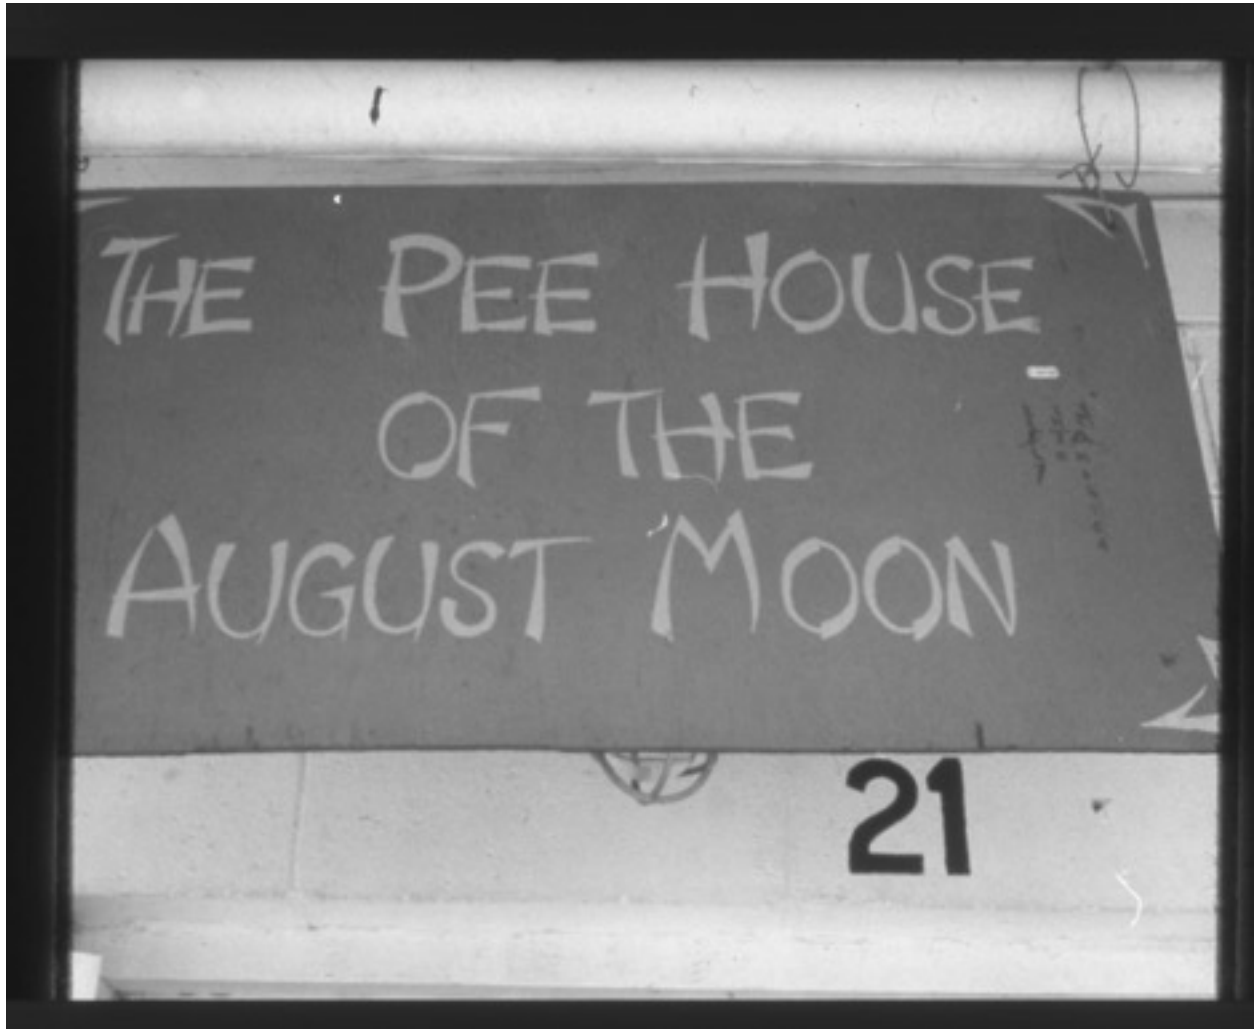 THE PEE HOUSE
OF THE
AUGUST MOON
21